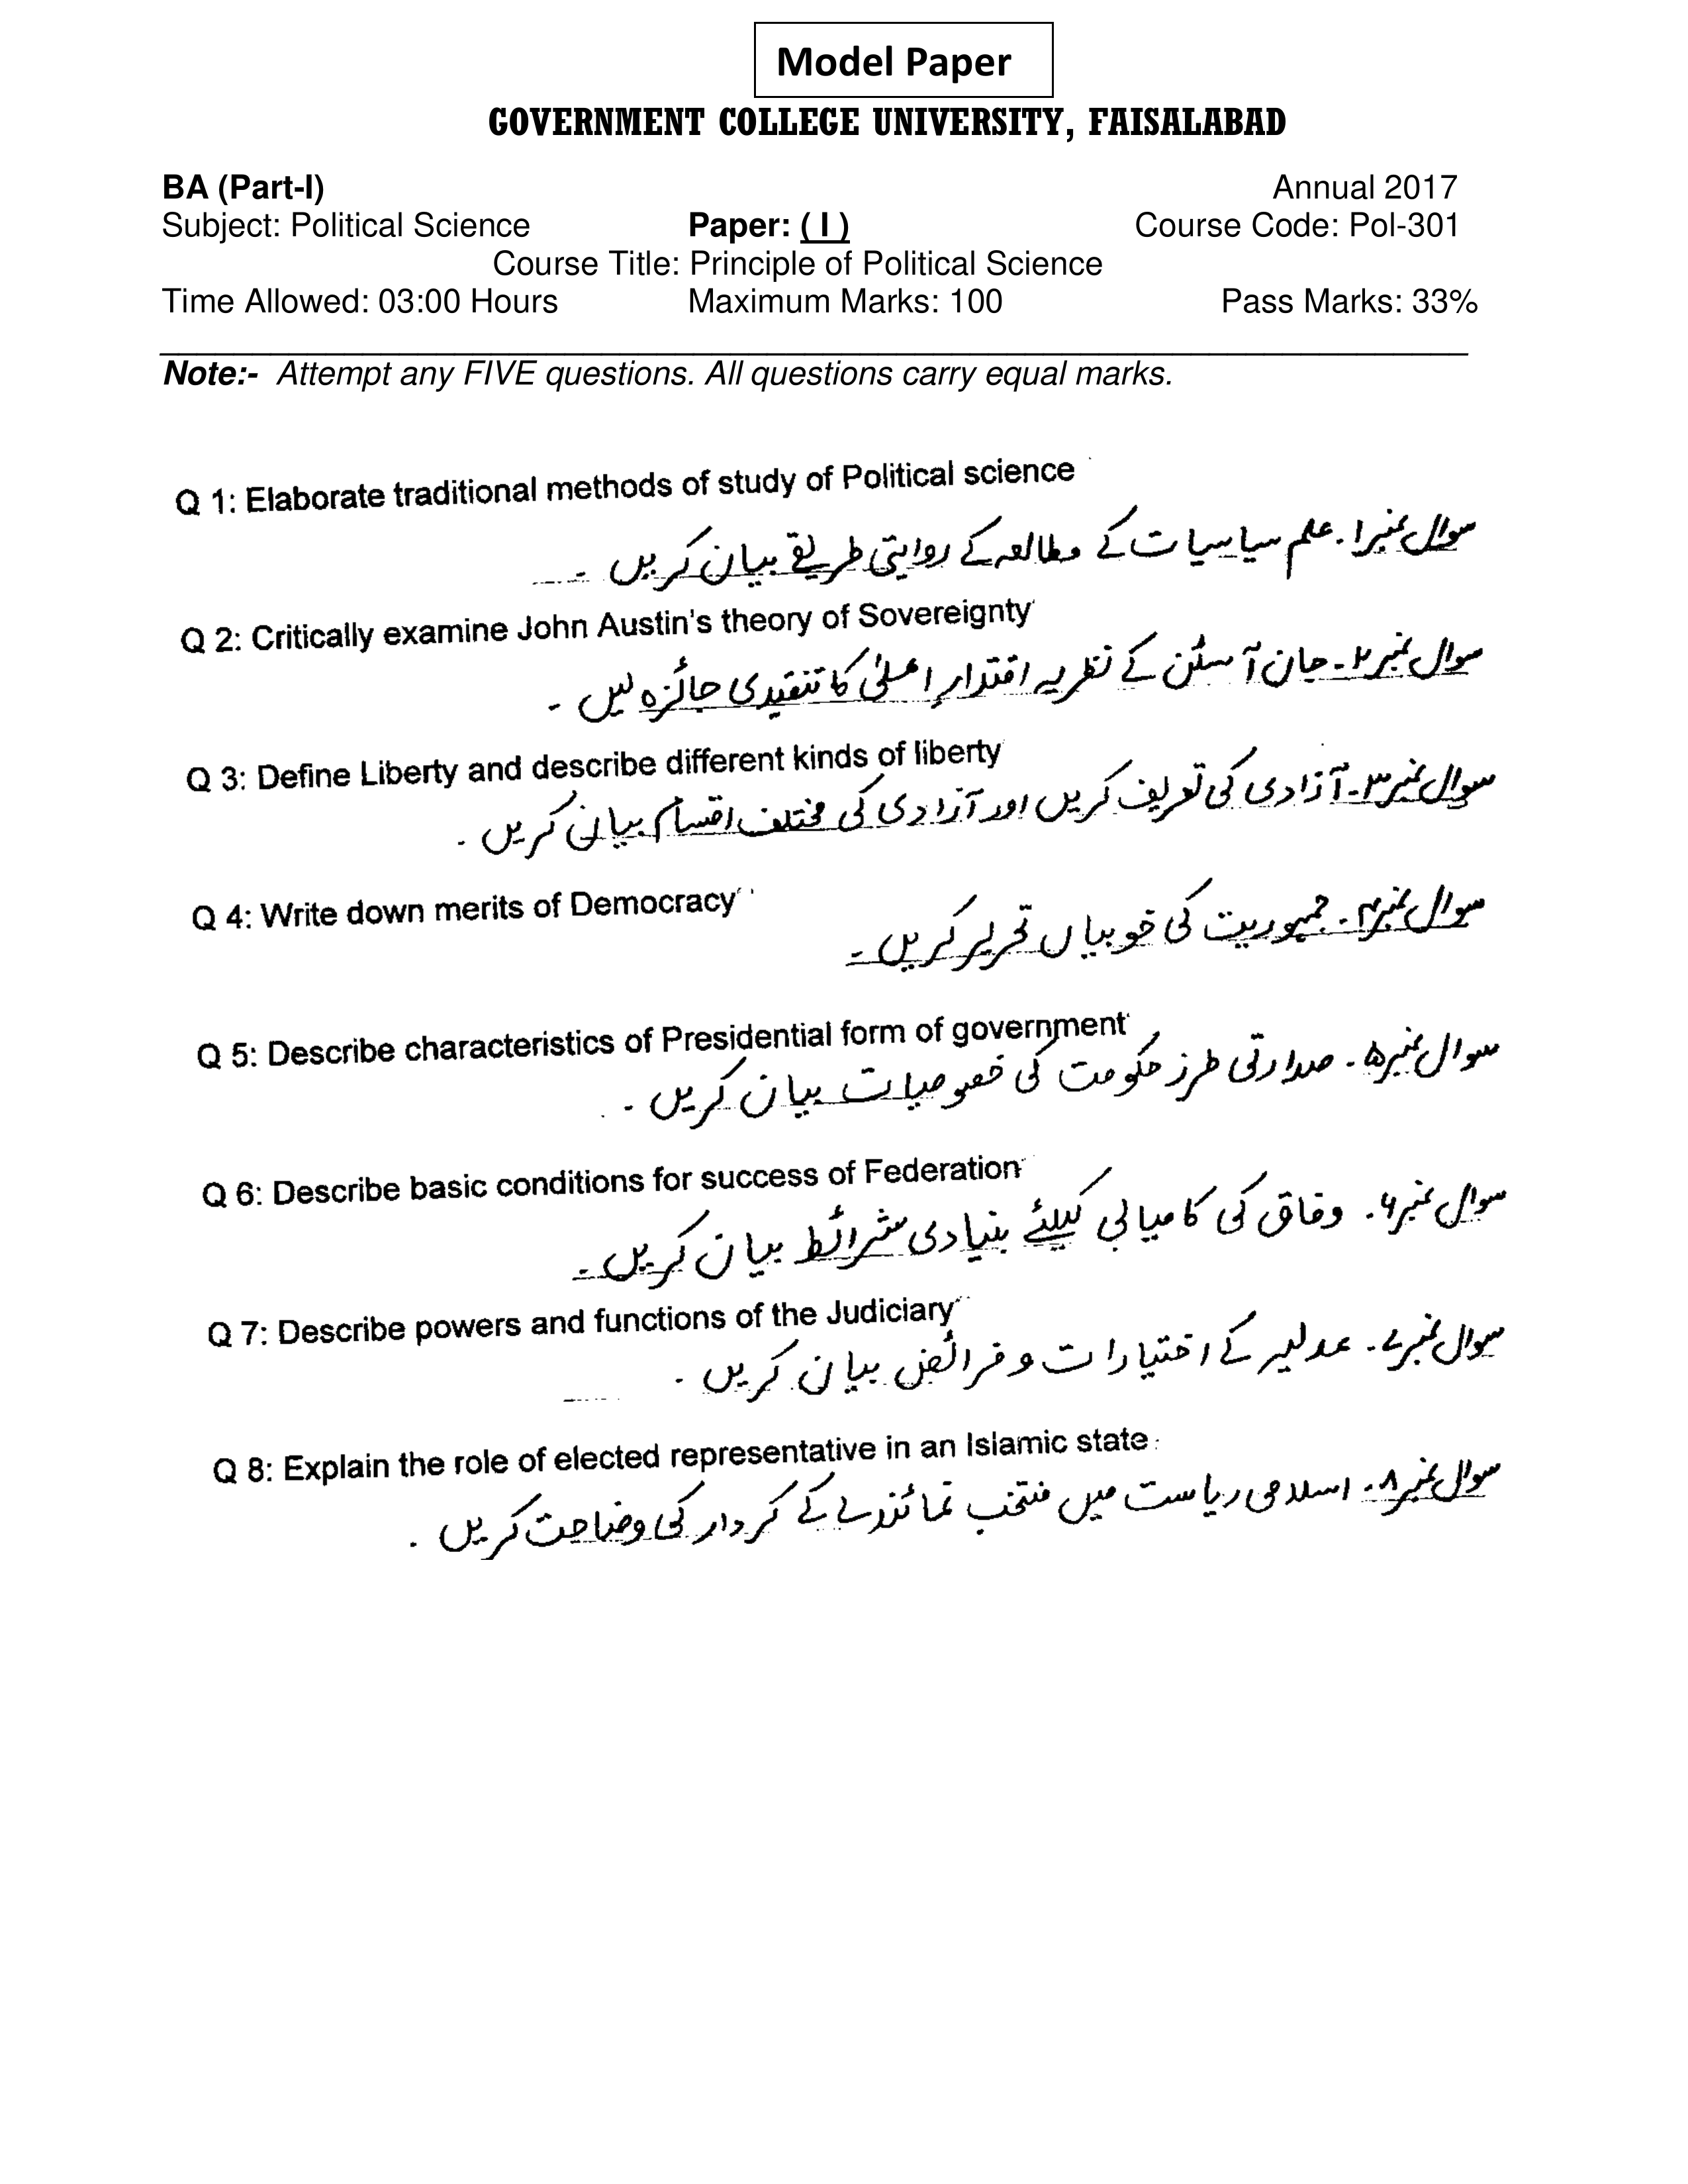 Model Paper
GOVERNMENT COLLEGE UNIVERSITY, FAISALABAD
BA (Part-I) Annual 2017
Subject: Political Science Paper: ( I ) Course Code: Pol-301
Course Title: Principle of Political Science
Time Allowed: 03:00 Hours Maximum Marks: 100 Pass Marks: 33%
Note:- Attempt any FIVE questions. All questions carry equal marks.
Q 1: Elaborate traditional methods of study of Political science
سوال نمبر۱۔ علم سیاسیات کے مطالعہ کے روایتی طریقے بیان کریں ۔
Q 2: Critically examine John Austin's theory of Sovereignty
سوال نمبر۲۔ جان آسٹن کے نظریہ اقتدارِ اعلیٰ کا تنقیدی جائزہ لیں ۔
Q 3: Define Liberty and describe different kinds of liberty
سوال نمبر۳۔ آزادی کی تعریف کریں اور آزادی کی مختلف اقسام بیان کریں ۔
Q 4: Write down merits of Democracy
سوال نمبر۴۔ جمہوریت کی خوبیاں تحریر کریں ۔
Q 5: Describe characteristics of Presidential form of government
سوال نمبر۵۔ صدارتی طرز حکومت کی خصوصیات بیان کریں ۔
Q 6: Describe basic conditions for success of Federation
سوال نمبر۶۔ وفاق کی کامیابی کیلئے بنیادی شرائط بیان کریں ۔
Q 7: Describe powers and functions of the Judiciary
سوال نمبر۷۔ عدلیہ کے اختیارات و فرائض بیان کریں ۔
Q 8: Explain the role of elected representative in an Islamic state
سوال نمبر۸۔ اسلامی ریاست میں منتخب نمائندے کے کردار کی وضاحت کریں ۔